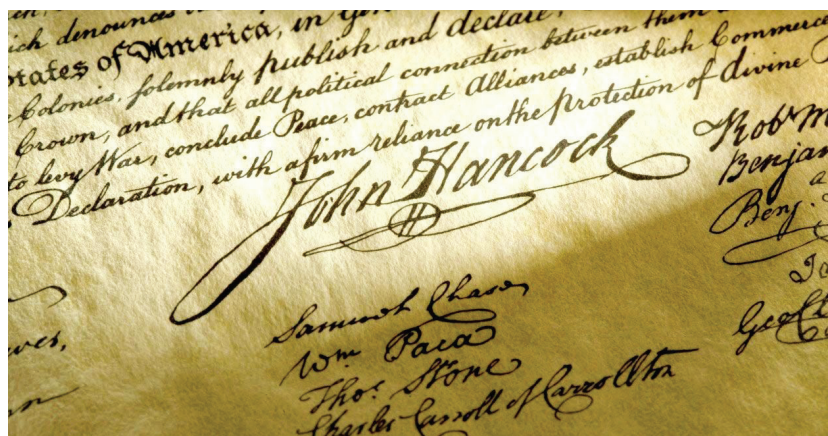 ich denounces
tates of America, in
Colonies, solemnly publish and declare,
Crown, and that all political connection between them
to levy War, conclude Peace, contract Alliances, establish Commerce
Declaration, with a firm reliance on the Protection of divine
John Hancock
Rob M
Benjam
Benj.
Samuel Chase
Wm. Paca
Thos. Stone
Charles Carroll of Carrollton
Geo